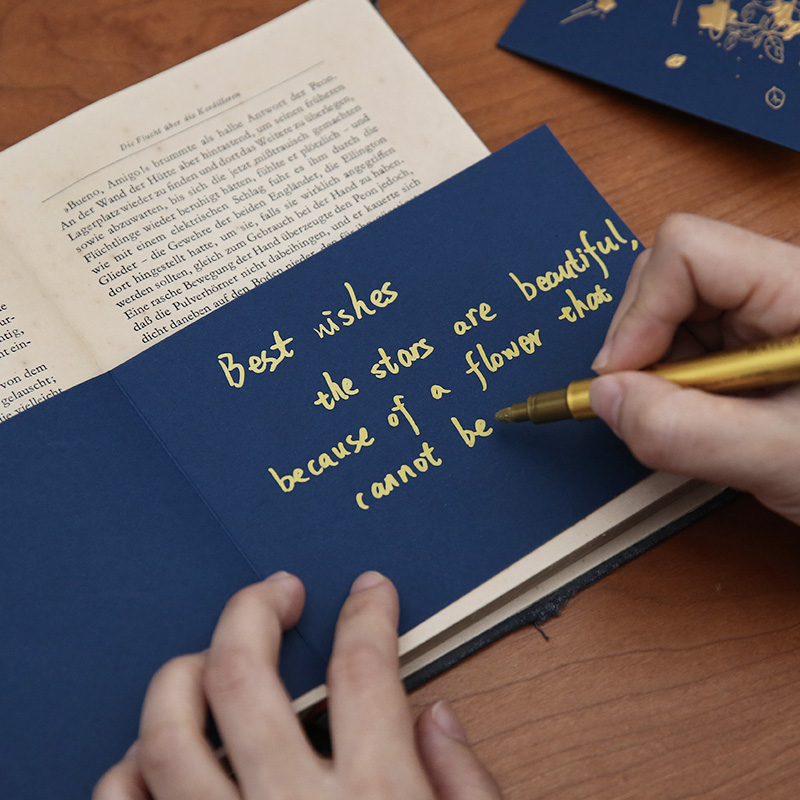 Die Flucht über die Kordilleren
»Bueno, Amigo!« brummte als halbe Antwort der Peon.
An der Wand der Hütte aber hintastend, um seinen früheren
Lagerplatz wieder zu finden und dort das Weitere zu überlegen,
sowie abzuwarten, bis sich die jetzt mißtrauisch gemachten
Flüchtlinge wieder beruhigt hätten, fühlte er plötzlich – und
wie mit einem elektrischen Schlag fuhr es ihm durch die
Glieder – die Gewehre der beiden Engländer, die Ellington
dort hingestellt hatte, um sie, falls sie wirklich angegriffen
werden sollten, gleich zum Gebrauch bei der Hand zu haben.
Eine rasche Bewegung der Hand überzeugte den Peon jedoch,
daß die Pulverhörner nicht dabeihingen, und er kauerte sich
dicht daneben auf den Boden nieder, den
von dem
gelauscht;
vielleicht
Best wishes
the stars are beautiful,
because of a flower that
cannot be